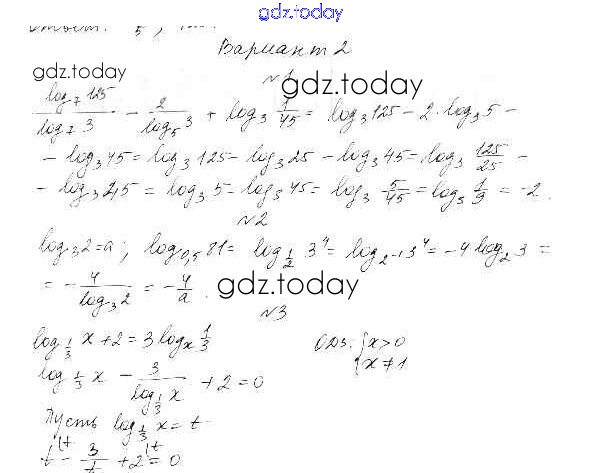 gdz.today
Вариант 2
gdz.today
№1
gdz.today
log₇125/log₇3 - 2/log₅3 + log₃ 1/45 = log₃125 - 2·log₃5 -
- log₃45 = log₃125 - log₃25 - log₃45 = log₃ 125/25 -
- log₃45 = log₃5 - log₃45 = log₃ 5/45 = log₃ 1/9 = -2.
№2
log₃2=a; log₀,₅81 = log_{1/2} 3⁴ = log_{2⁻¹} 3⁴ = -4 log₂3 =
= - 4/log₃2 = - 4/a.
gdz.today
№3
log_{1/3} x + 2 = 3 log_x 1/3 ОДЗ: {x>0
log_{1/3} x - 3/log_{1/3} x + 2 = 0 {x≠1
Пусть log_{1/3} x = t
t - 3/t + 2 = 0